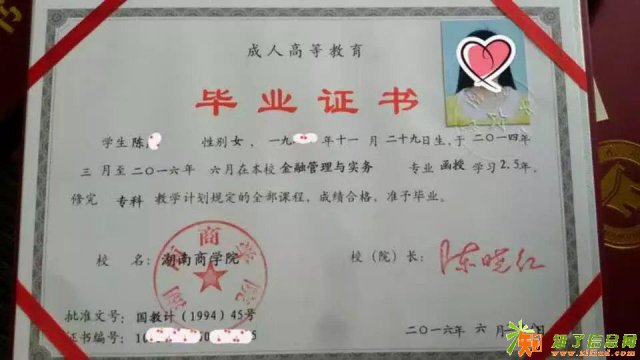 成人高等教育
毕业证书
学生陈 性别女，一九 年十一月二十九日生，于二〇一四年
三月至二〇一六年 六月在本校金融管理与实务 专业函授学习2.5年，
修完 专科 教学计划规定的全部课程，成绩合格，准予毕业。
校 名：湖南商学院 校（院）长：陈晓红
批准文号：国教计（1994）45号
证书编号：10 50 5
二〇一六年 六月 日
知了信息网